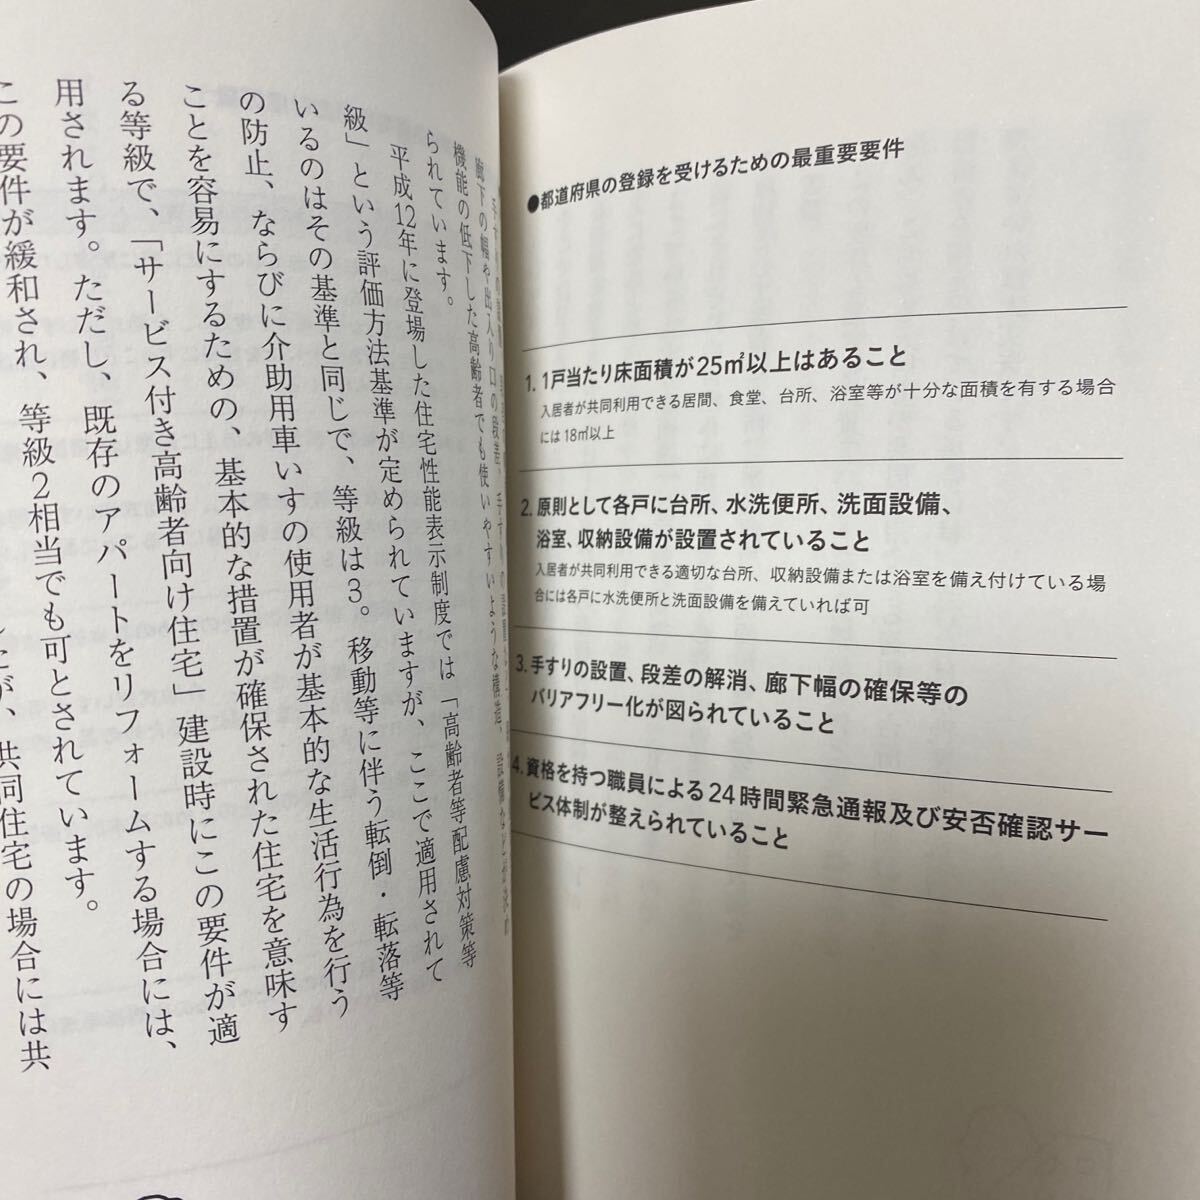 ●都道府県の登録を受けるための最重要要件
1. 1戸当たり床面積が25㎡以上はあること
入居者が共同利用できる居間、食堂、台所、浴室等が十分な面積を有する場合
には18㎡以上
2. 原則として各戸に台所、水洗便所、洗面設備、
浴室、収納設備が設置されていること
入居者が共同利用できる適切な台所、収納設備または浴室を備え付けている場
合には各戸に水洗便所と洗面設備を備えていれば可
3. 手すりの設置、段差の解消、廊下幅の確保等の
バリアフリー化が図られていること
4. 資格を持つ職員による24時間緊急通報及び安否確認サー
ビス体制が整えられていること
廊下の幅や出入り口の段差、手すりの設置など、
機能の低下した高齢者でも使いやすいような構造、設備などが求め
られています。
平成12年に登場した住宅性能表示制度では「高齢者等配慮対策等
級」という評価方法基準が定められていますが、ここで適用されて
いるのはその基準と同じで、等級は3。移動等に伴う転倒・転落等
の防止、ならびに介助用車いすの使用者が基本的な生活行為を行う
ことを容易にするための、基本的な措置が確保された住宅を意味す
る等級で、「サービス付き高齢者向け住宅」建設時にこの要件が適
用されます。ただし、既存のアパートをリフォームする場合には、
この要件が緩和され、等級2相当でも可とされています。
たが、共同住宅の場合には共